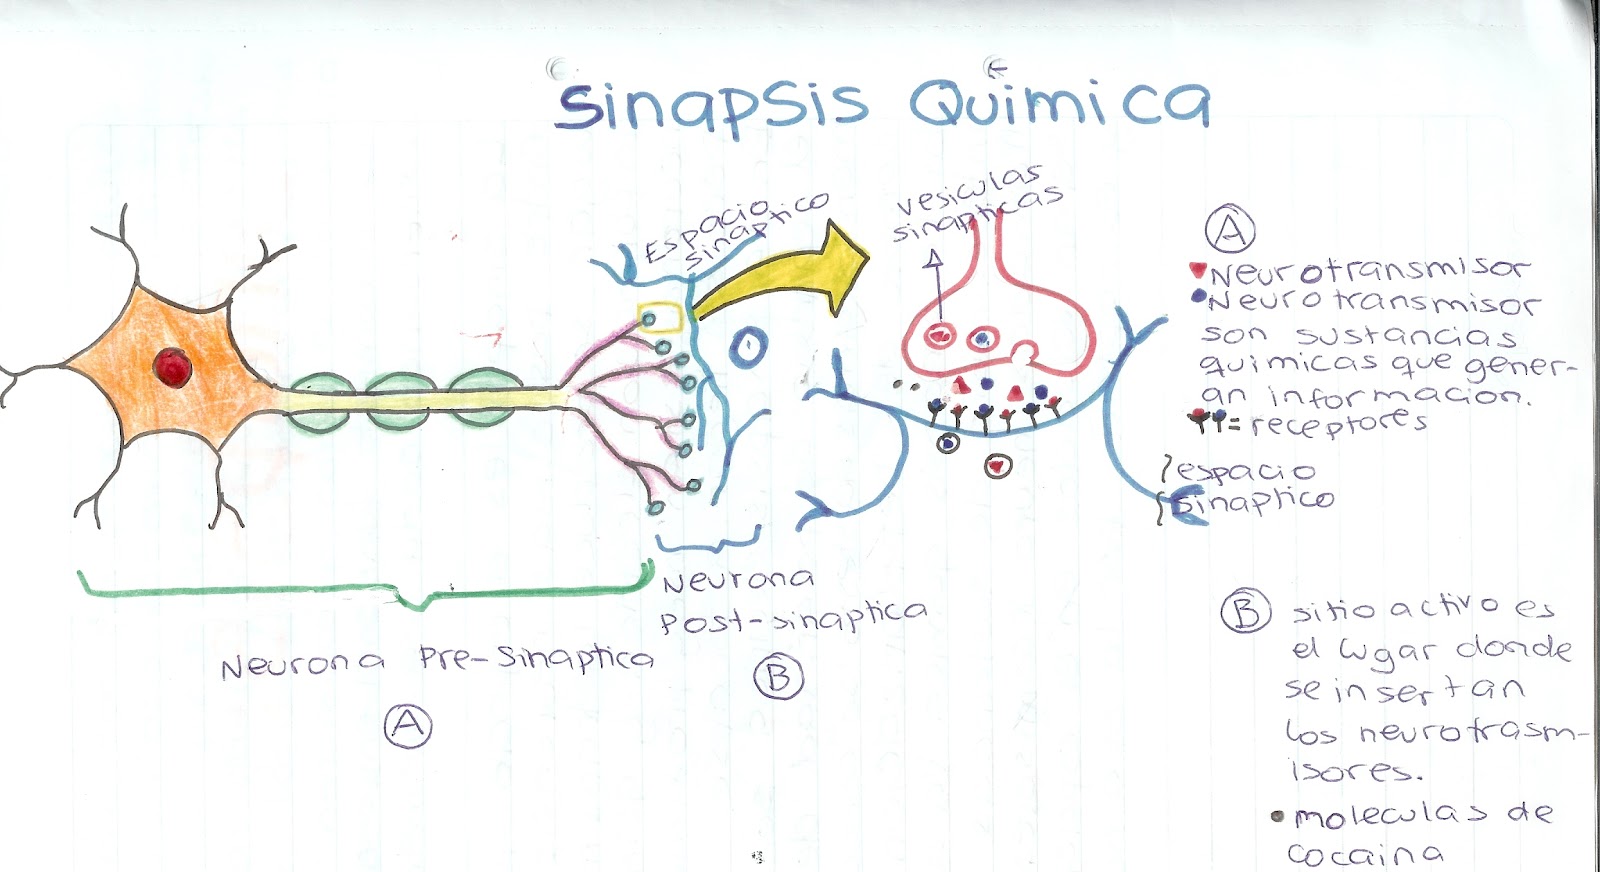 Sinapsis Quimica
Espacio
sinaptico
vesiculas
sinapticas
A
Neurotransmisor
Neurotransmisor
son sustancias
quimicas que gener-
an informacion.
= receptores
espacio
sinaptico
Neurona
Post-sinaptica
B
Neurona Pre-Sinaptica
A
B sitio activo es
el lugar donde
se insertan
los neurotrasm-
isores.
• moleculas de
cocaina